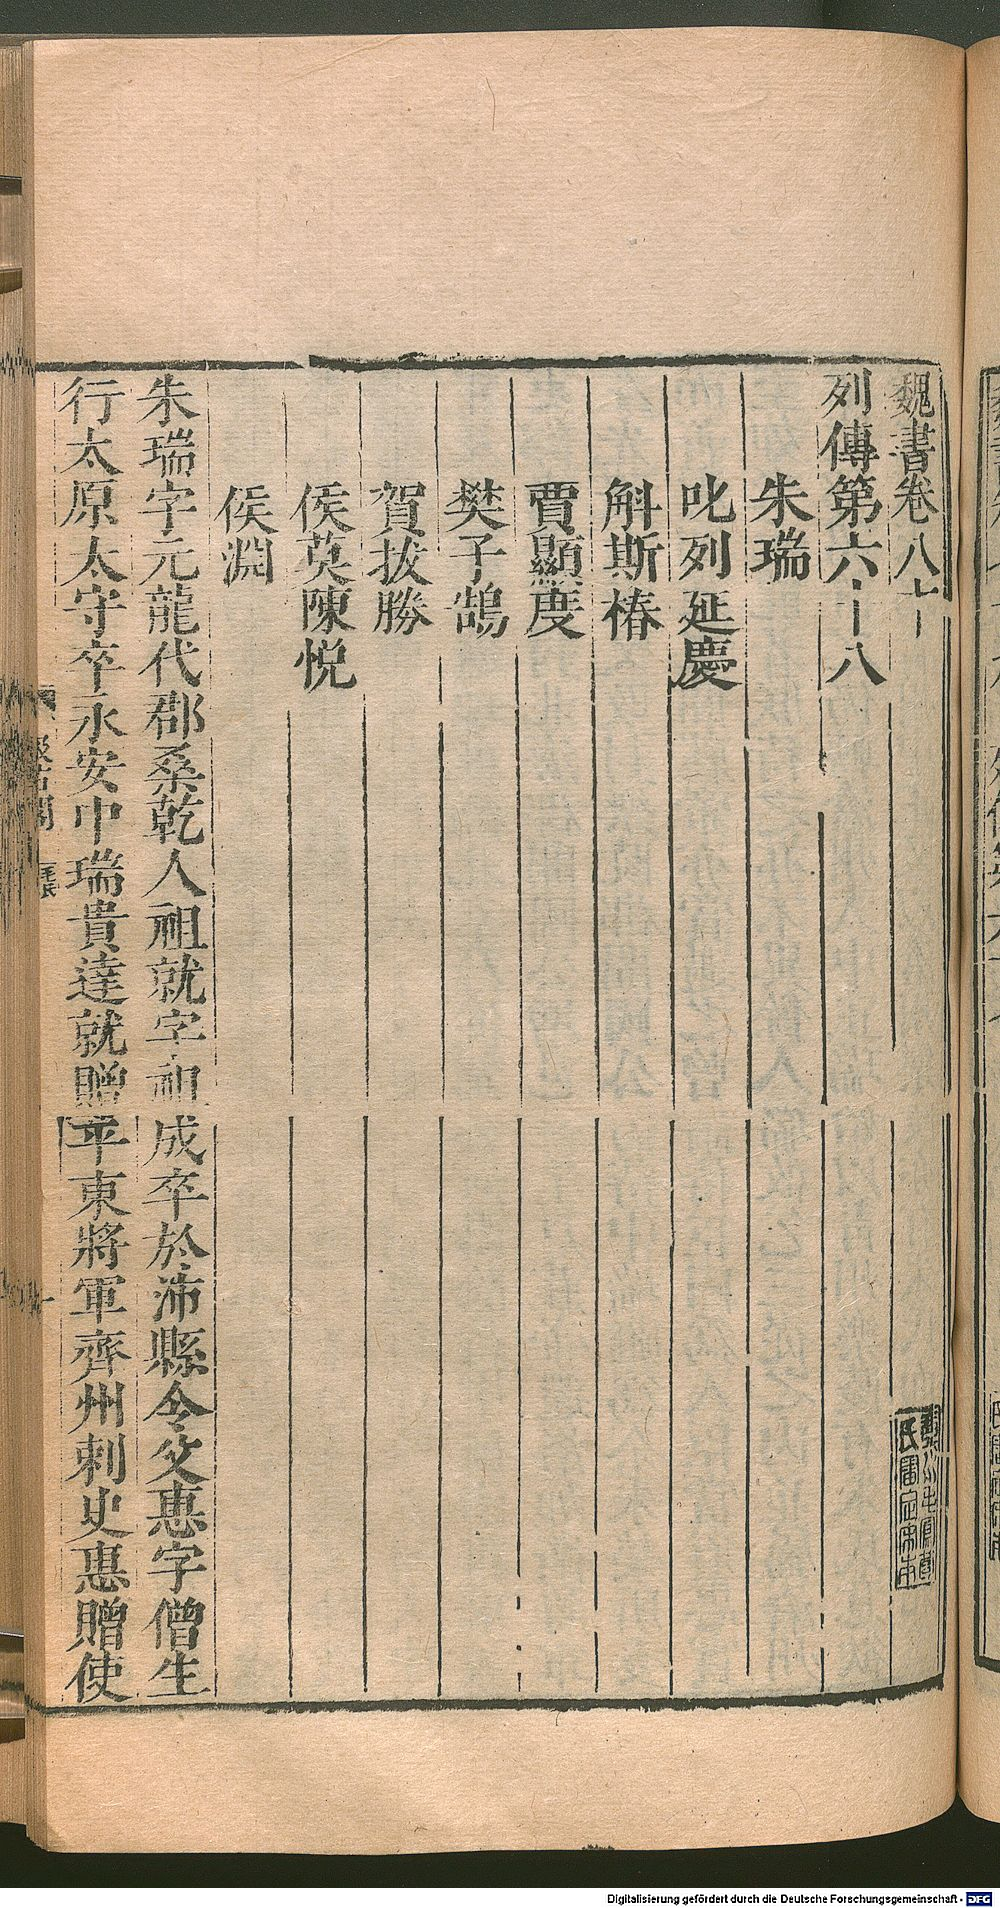 魏書卷八十
列傳第六十八
朱瑞
叱列延慶
斛斯椿
賈顯度
樊子鵠
賀拔勝
侯莫陳悅
侯淵
朱瑞字元龍代郡桑乾人祖就字祖成卒於沛縣令父惠字僧生
行太原太守卒永安中瑞貴達就贈平東將軍齊州刺史惠贈使
Digitalisierung gefördert durch die Deutsche Forschungsgemeinschaft - DFG